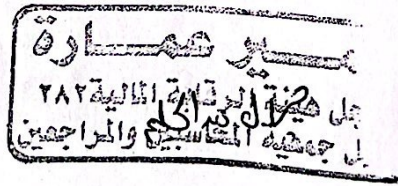 ـير عمــارة
جل هيئة الرقابة المالية ٢٨٢
ل جمعية المحاسبين والمراجعين